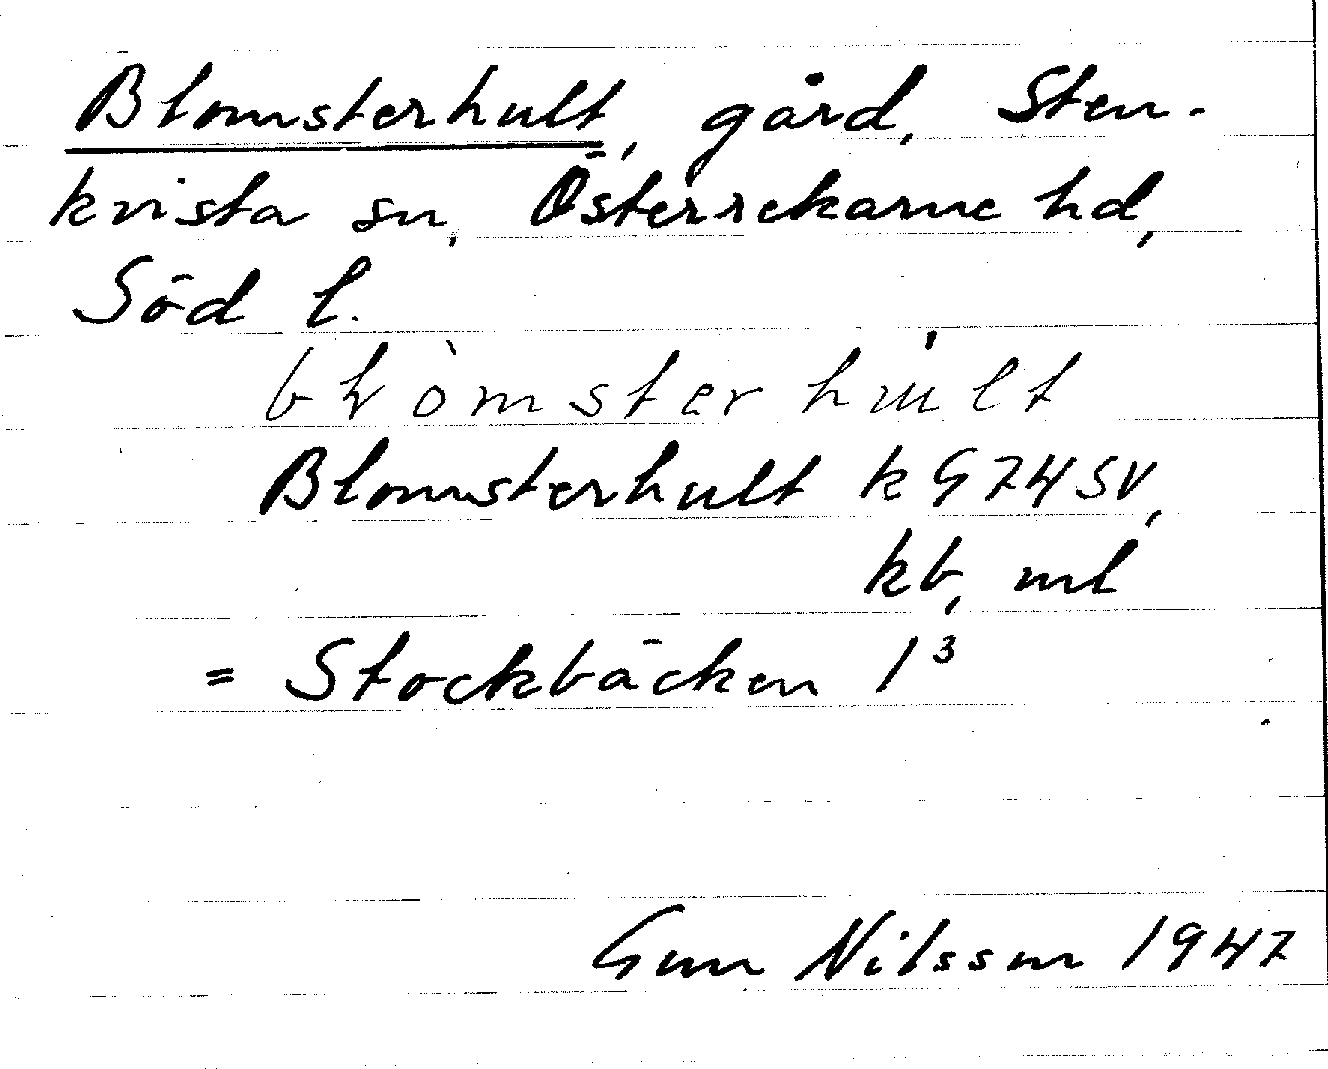 Blomsterhult, gård, Sten-
kvista sn, Österrekarne hd,
Söd l.
blòmsterhult
Blomsterhult k G 74 SV,
kb, ml
= Stockbäcken 1³
Gun Nilsson 1947